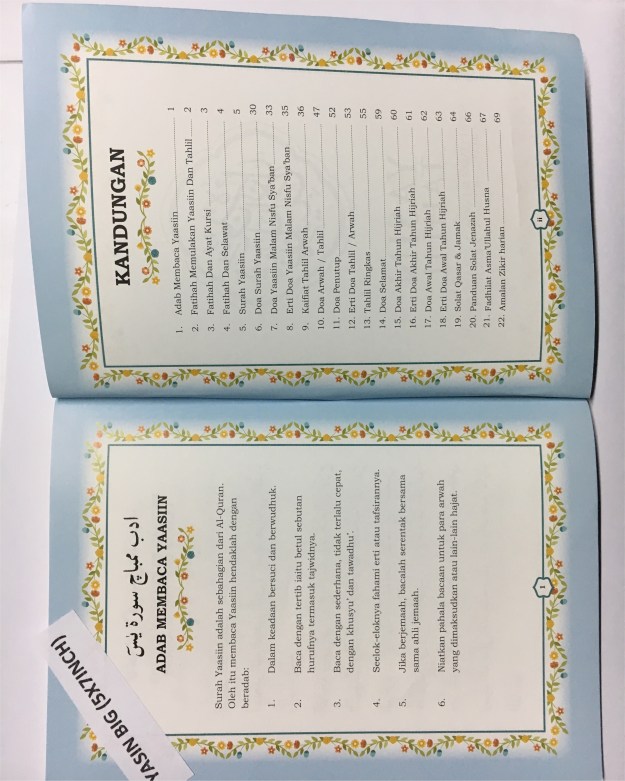 KANDUNGAN
1. Adab Membaca Yaasiin 1
2. Fatihah Memulakan Yaasiin Dan Tahlil 2
3. Fatihah Dan Ayat Kursi 3
4. Fatihah Dan Selawat 4
5. Surah Yaasiin 5
6. Doa Surah Yaasiin 30
7. Doa Yaasiin Malam Nisfu Sya'ban 33
8. Erti Doa Yaasiin Malam Nisfu Sya'ban 35
9. Kaifiat Tahlil Arwah 36
10. Doa Arwah / Tahlil 47
11. Doa Penutup 52
12. Erti Doa Tahlil / Arwah 53
13. Tahlil Ringkas 55
14. Doa Selamat 59
15. Doa Akhir Tahun Hijriah 60
16. Erti Doa Akhir Tahun Hijriah 61
17. Doa Awal Tahun Hijriah 62
18. Erti Doa Awal Tahun Hijriah 63
19. Solat Qasar & Jamak 64
20. Panduan Solat Jenazah 66
21. Fadhilat Asma Ullahul Husna 67
22. Amalan Zikir harian 69
ii
ادب ممباچ سورة يسٓ
ADAB MEMBACA YAASIIN
Surah Yaasiin adalah sebahagian dari Al-Quran.
Oleh itu membaca Yaasiin hendaklah dengan
beradab:
1. Dalam keadaan bersuci dan berwudhuk.
2. Baca dengan tertib iaitu betul sebutan
hurufnya termasuk tajwidnya.
3. Baca dengan sederhana, tidak terlalu cepat,
dengan khusyu' dan tawadhu'.
4. Seelok-eloknya fahami erti atau tafsirannya.
5. Jika berjemaah, bacalah serentak bersama
sama ahli jemaah.
6. Niatkan pahala bacaan untuk para arwah
yang dimaksudkan atau lain-lain hajat.
1
YASIN BIG (5X7INCH)